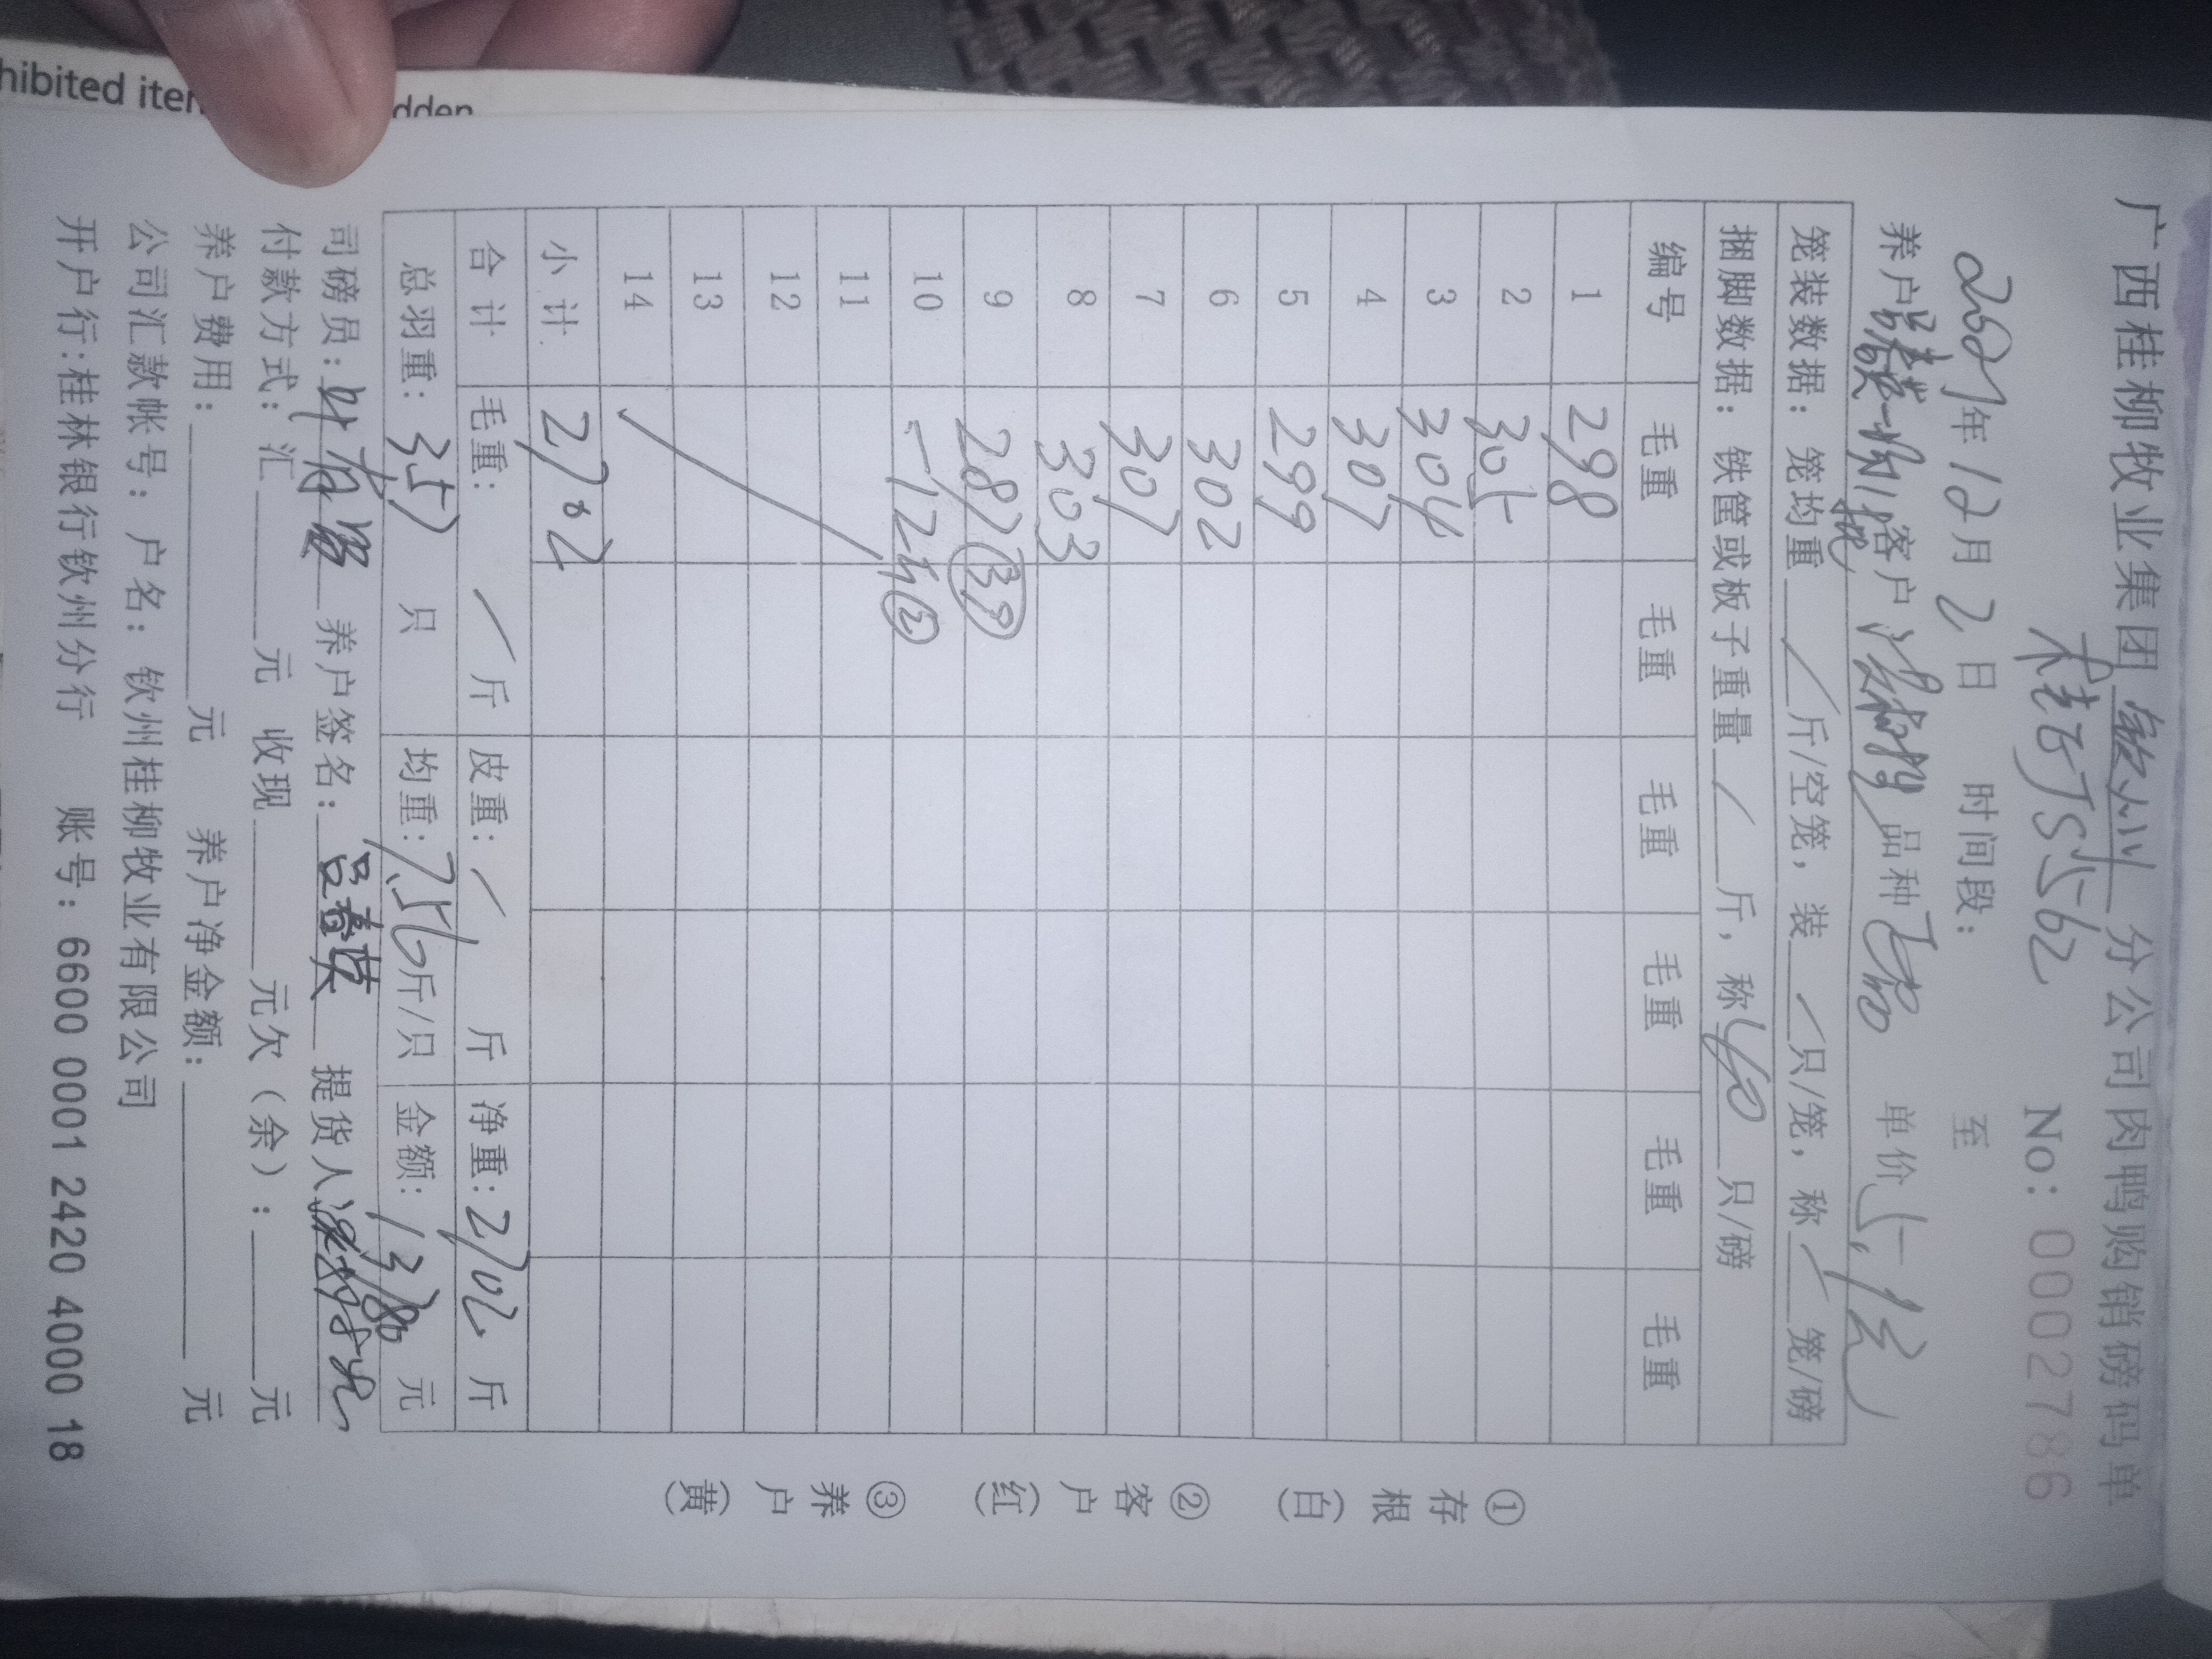 hibited iter dden
广西桂柳牧业集团 钦州 分公司肉鸭购销磅码单
桂 No: 0002786
2021年12月2日 时间段: 至
养户 客户 品种 单价 5.1元
笼装数据: 笼均重 / 斤/空笼, 装 / 只/笼, 称 / 笼/磅
捆脚数据: 铁筐或板子重量 / 斤, 称 40 只/磅
编号 毛重 毛重 毛重 毛重 毛重 毛重
1 298
2 305
3 304
4 307
5 299
6 302
7 307
8 303
9 287 (39)
10 -12斤 ②
11
12
13
14
小计 2702
合计 毛重: / 斤 皮重: / 斤 净重: 2702 斤
总羽重: 357 只 均重: 7.56 斤/只 金额: 13780 元
司磅员: 养户签名: 吕春英 提货人
付款方式: 汇 元 收现 元 元欠(余): 元
养户费用: 元 养户净金额: 元
公司汇款帐号: 户名: 钦州桂柳牧业有限公司
开户行:桂林银行钦州分行 账号: 6600 0001 2420 4000 18
①存根(白) ②客户(红) ③养户(黄)